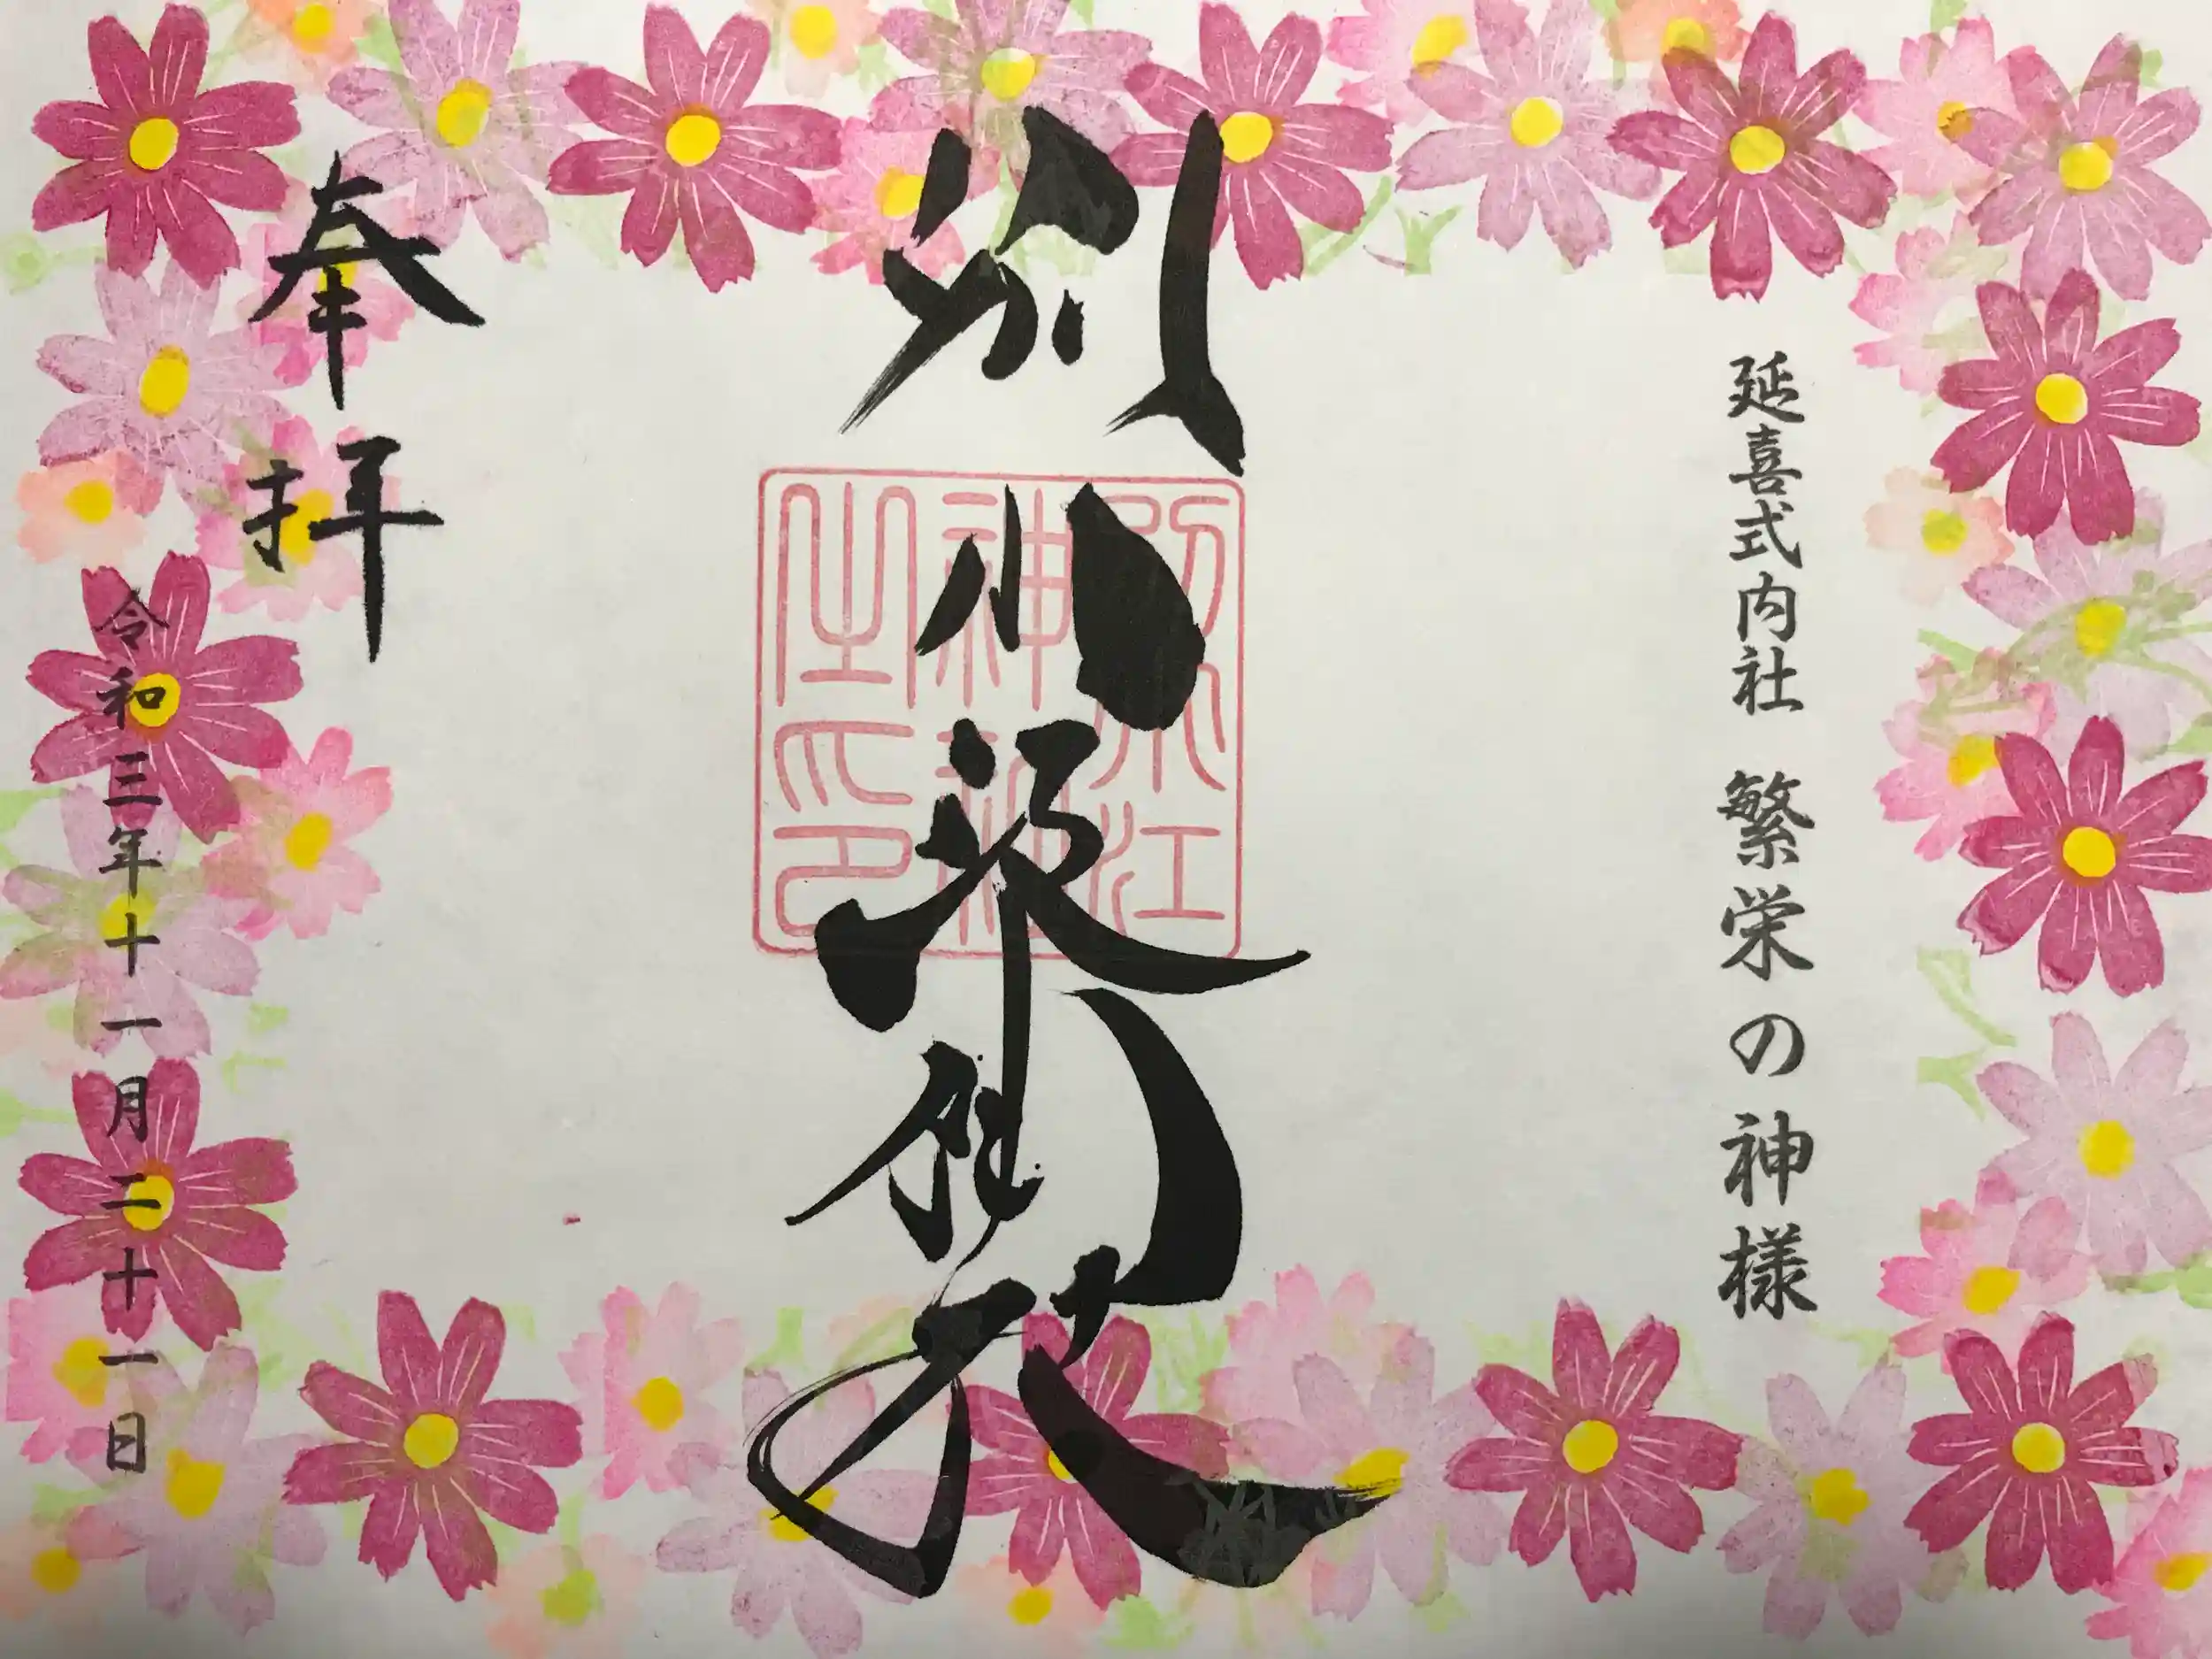 延喜式内社 繁栄の神様
別小江神社
別小江
神社
之印
奉拝
令和三年十一月二十一日